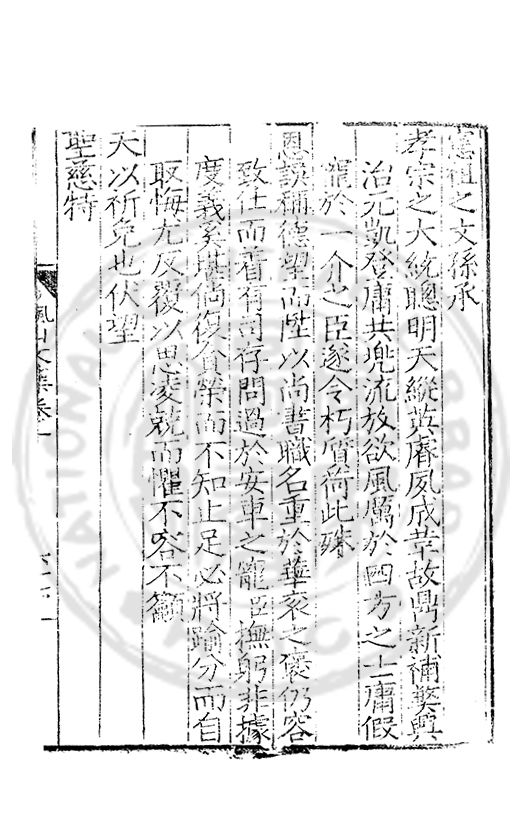 憲祖之文孫承
孝宗之大統聰明天縱英睿夙成革故鼎新補獘興
治元凱登庸共兠流放欲風厲於四方之士庸假
寵於一介之臣遂令朽質尚此殊
恩誤稱德望而陞以尚書職名重於華衮之褒仍容
致仕而着有司存問過於安車之寵臣撫躬非據
度義奚堪倘復貪榮而不知止足必將踰分而自
取悔尤反覆以思凌兢而懼不容不籲
天以祈免也伏望
聖慈特
楓山文集卷一